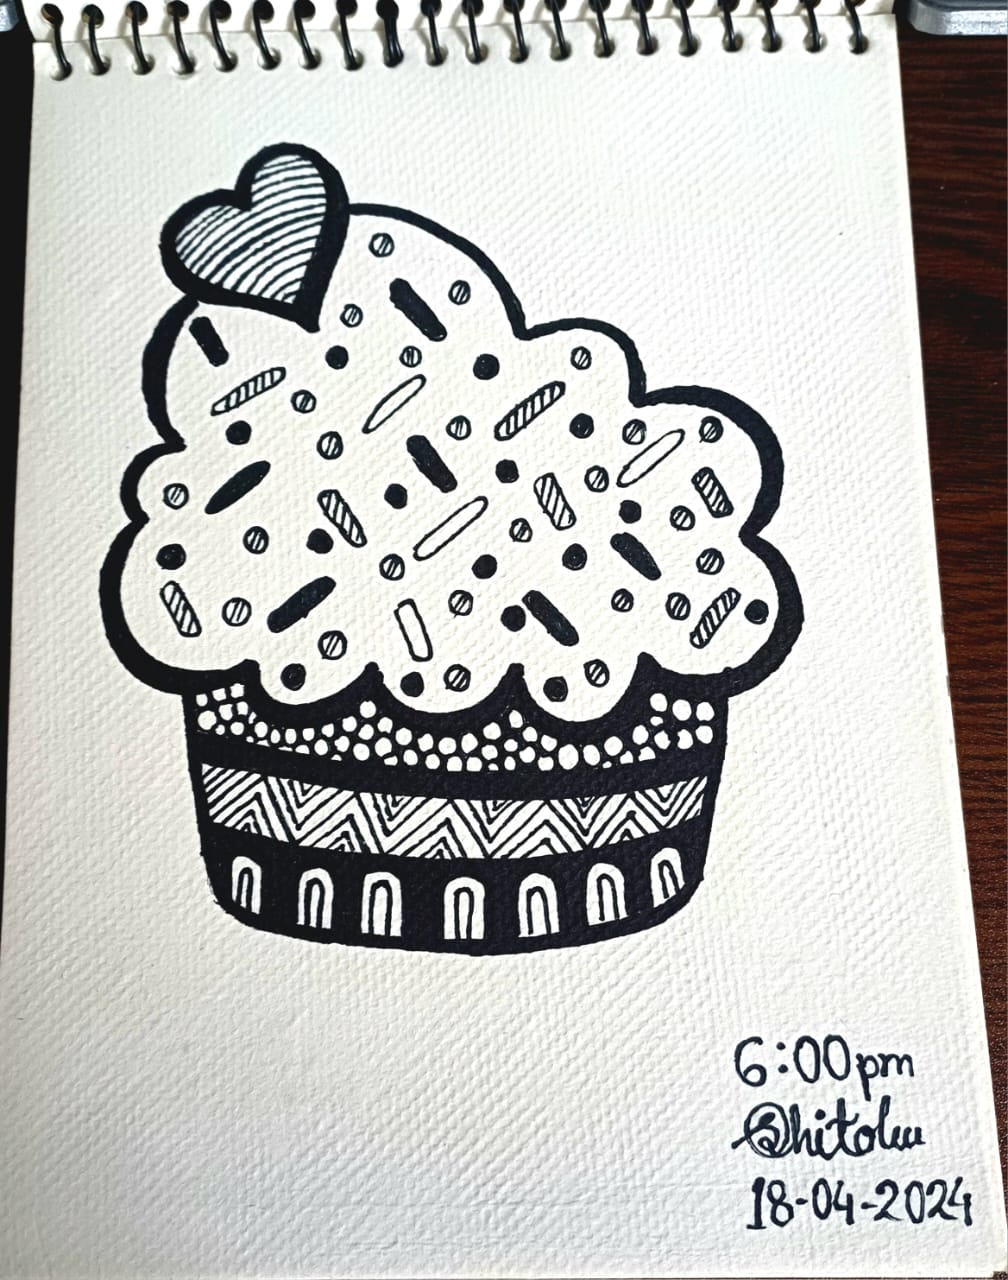 6:00pm
@hitolu
18-04-2024